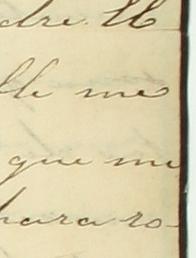 dre. Ill
lle me
que me
hara ro-